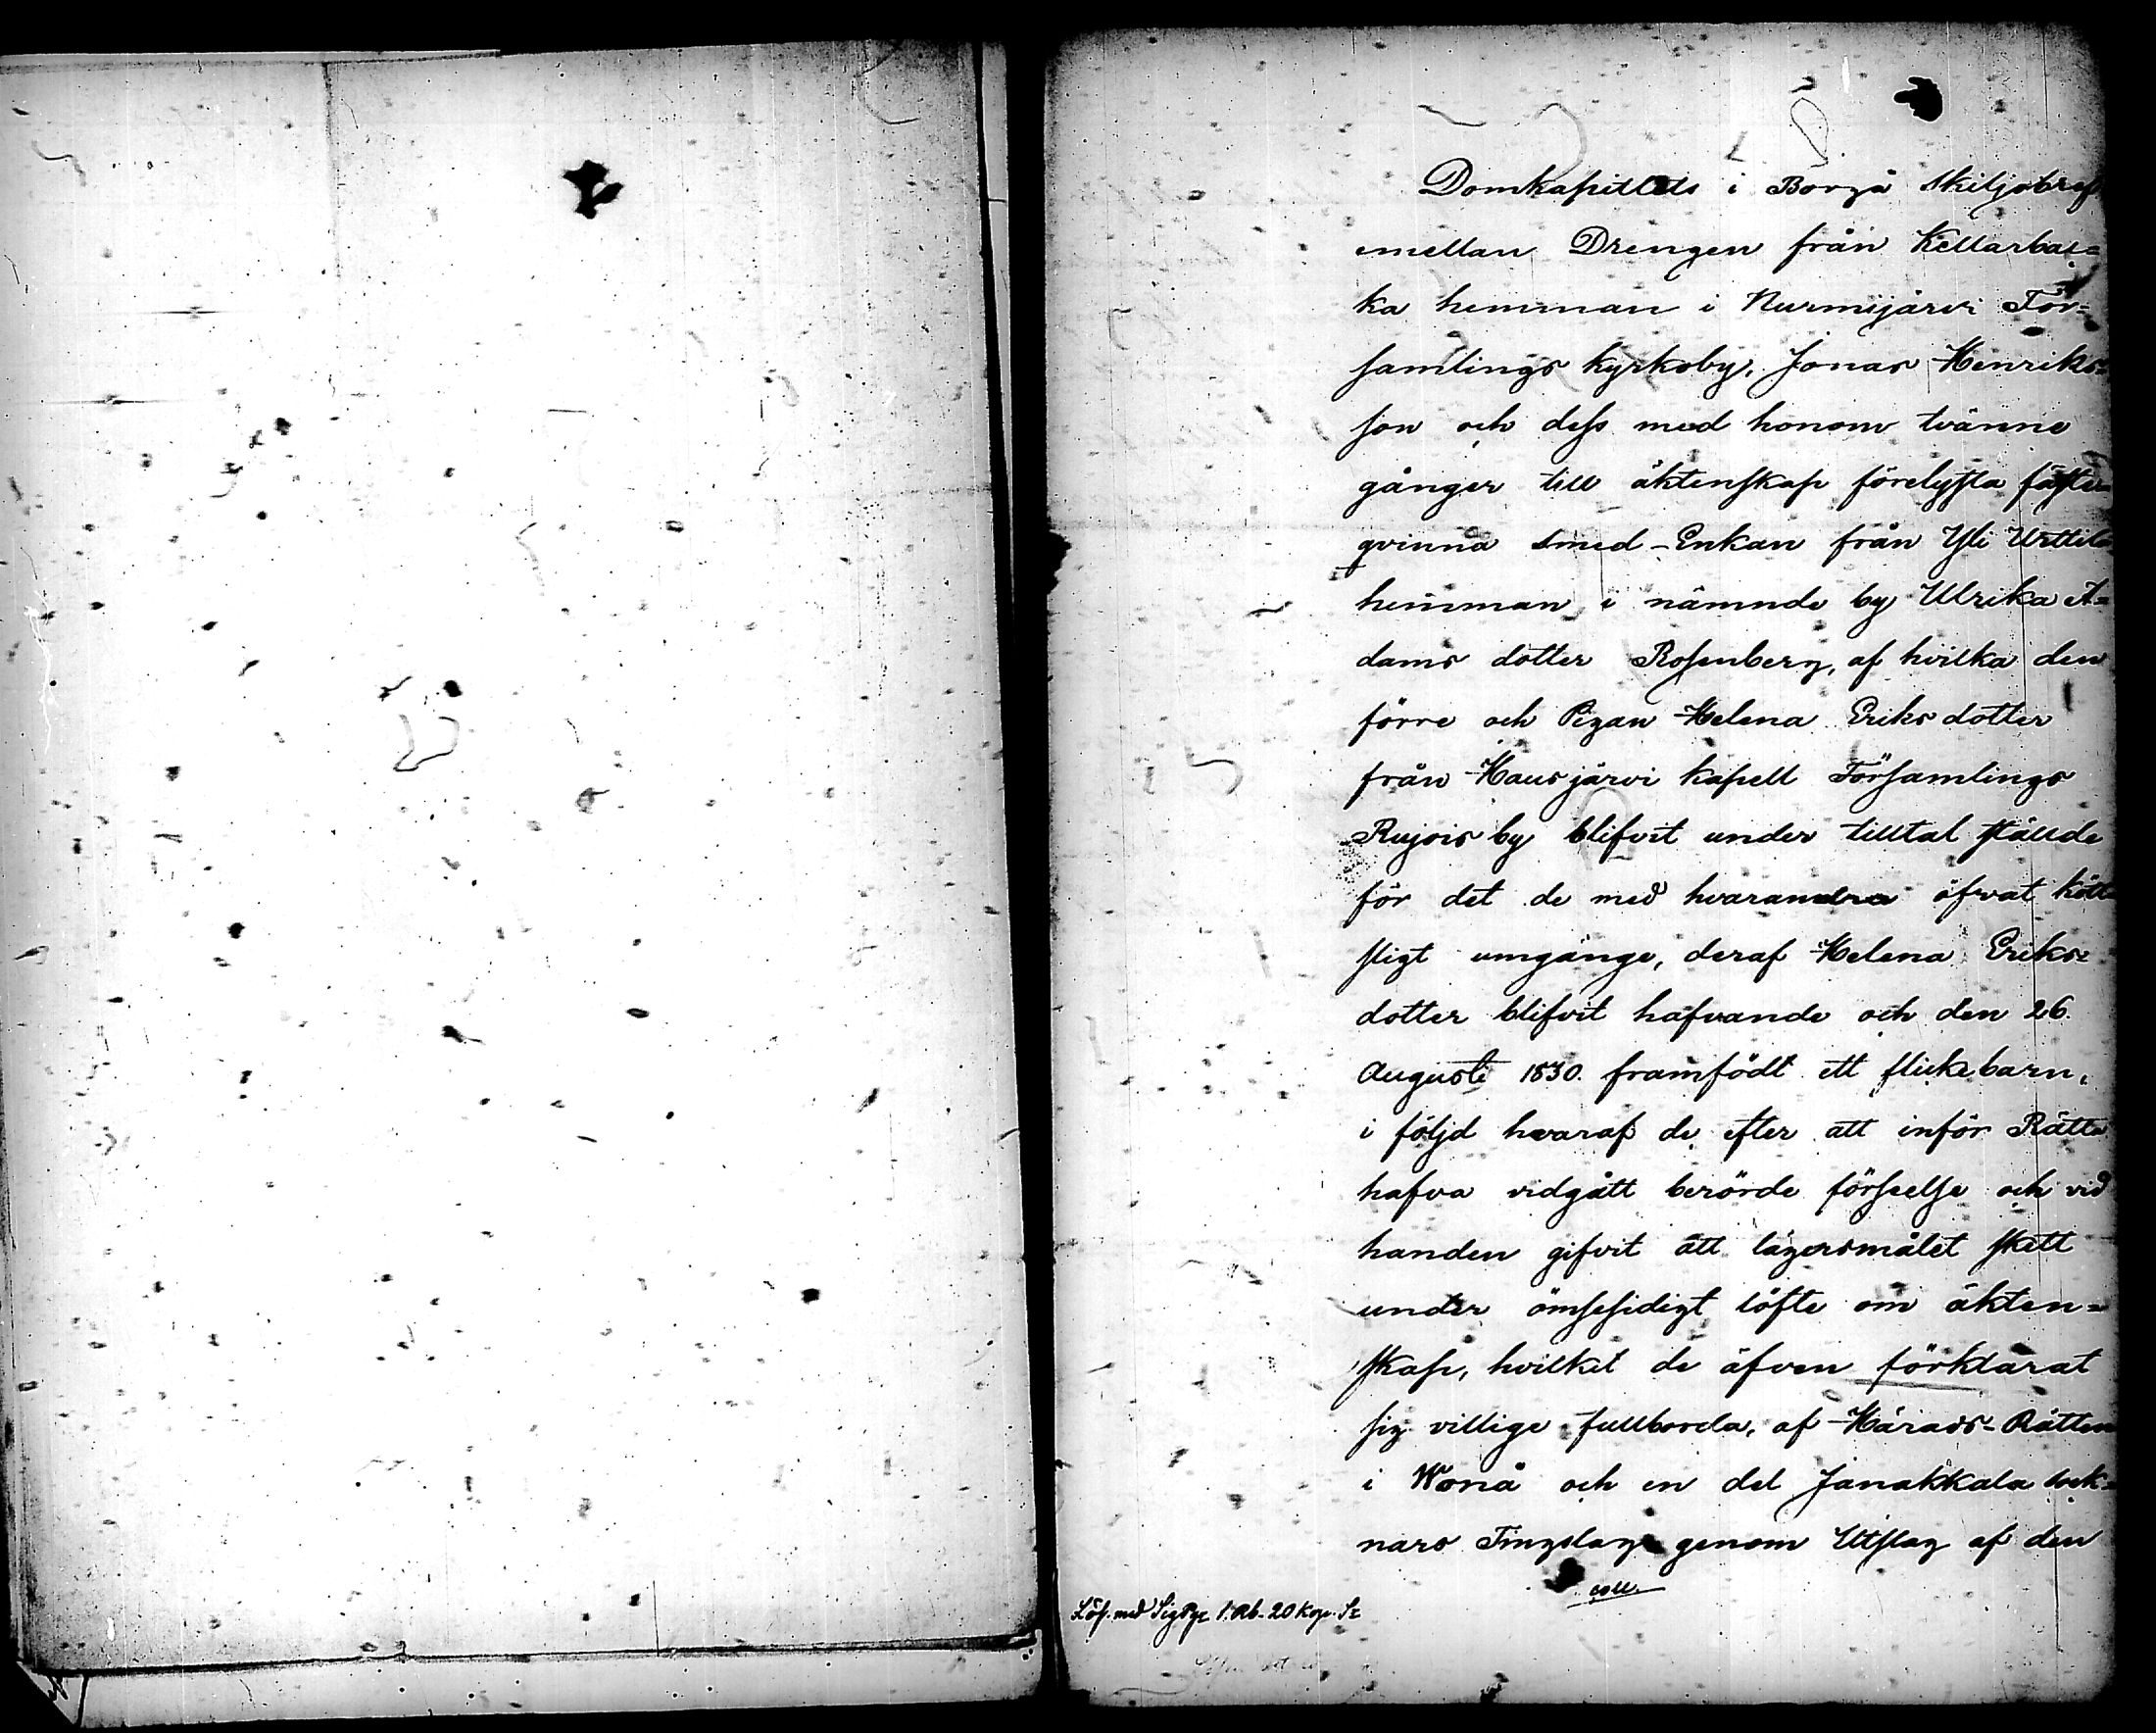 Domkapitlets i Borgå Skiljobref
emellan Drengen från Kellarbac=
ka hemman i Nurmijärvi För=
samlings Kyrkoby, Jonas Henriks=
son och dess med honom tvänne
gånger till äktenskap förelysta fäste=
qvinna Smed-Enkan från Yli Urttila
hemman i nämnde by Ulrika A=
dams dotter Rosenberg, af hvilka den
förre och Pigan Helena Eriks dotter
från Hausjärvi Kapell Församlings
Rujois by blifvit under tilltal stälde
för det de med hvarandra öfvat kött=
sligt umgänge, deraf Helena Eriks=
dotter blifvit hafvande och den 26.
Augusti 1830. framfödt ett flickebarn,
i följd hvaraf de efter att inför Rätta
hafva vidgått berörde förseelse och vid
handen gifvit att lägersmålet skett
under ömsesidigt löfte om äkten=
skap, hvilket de äfven förklarat
sig villige fullborda, af Härads-Rätten
i Wonå och en del Janakkala sock=
nars Tingslag genom Utslag af den
coll.
Lös. med Sig. 1. Rb. 20 Kop. Sr